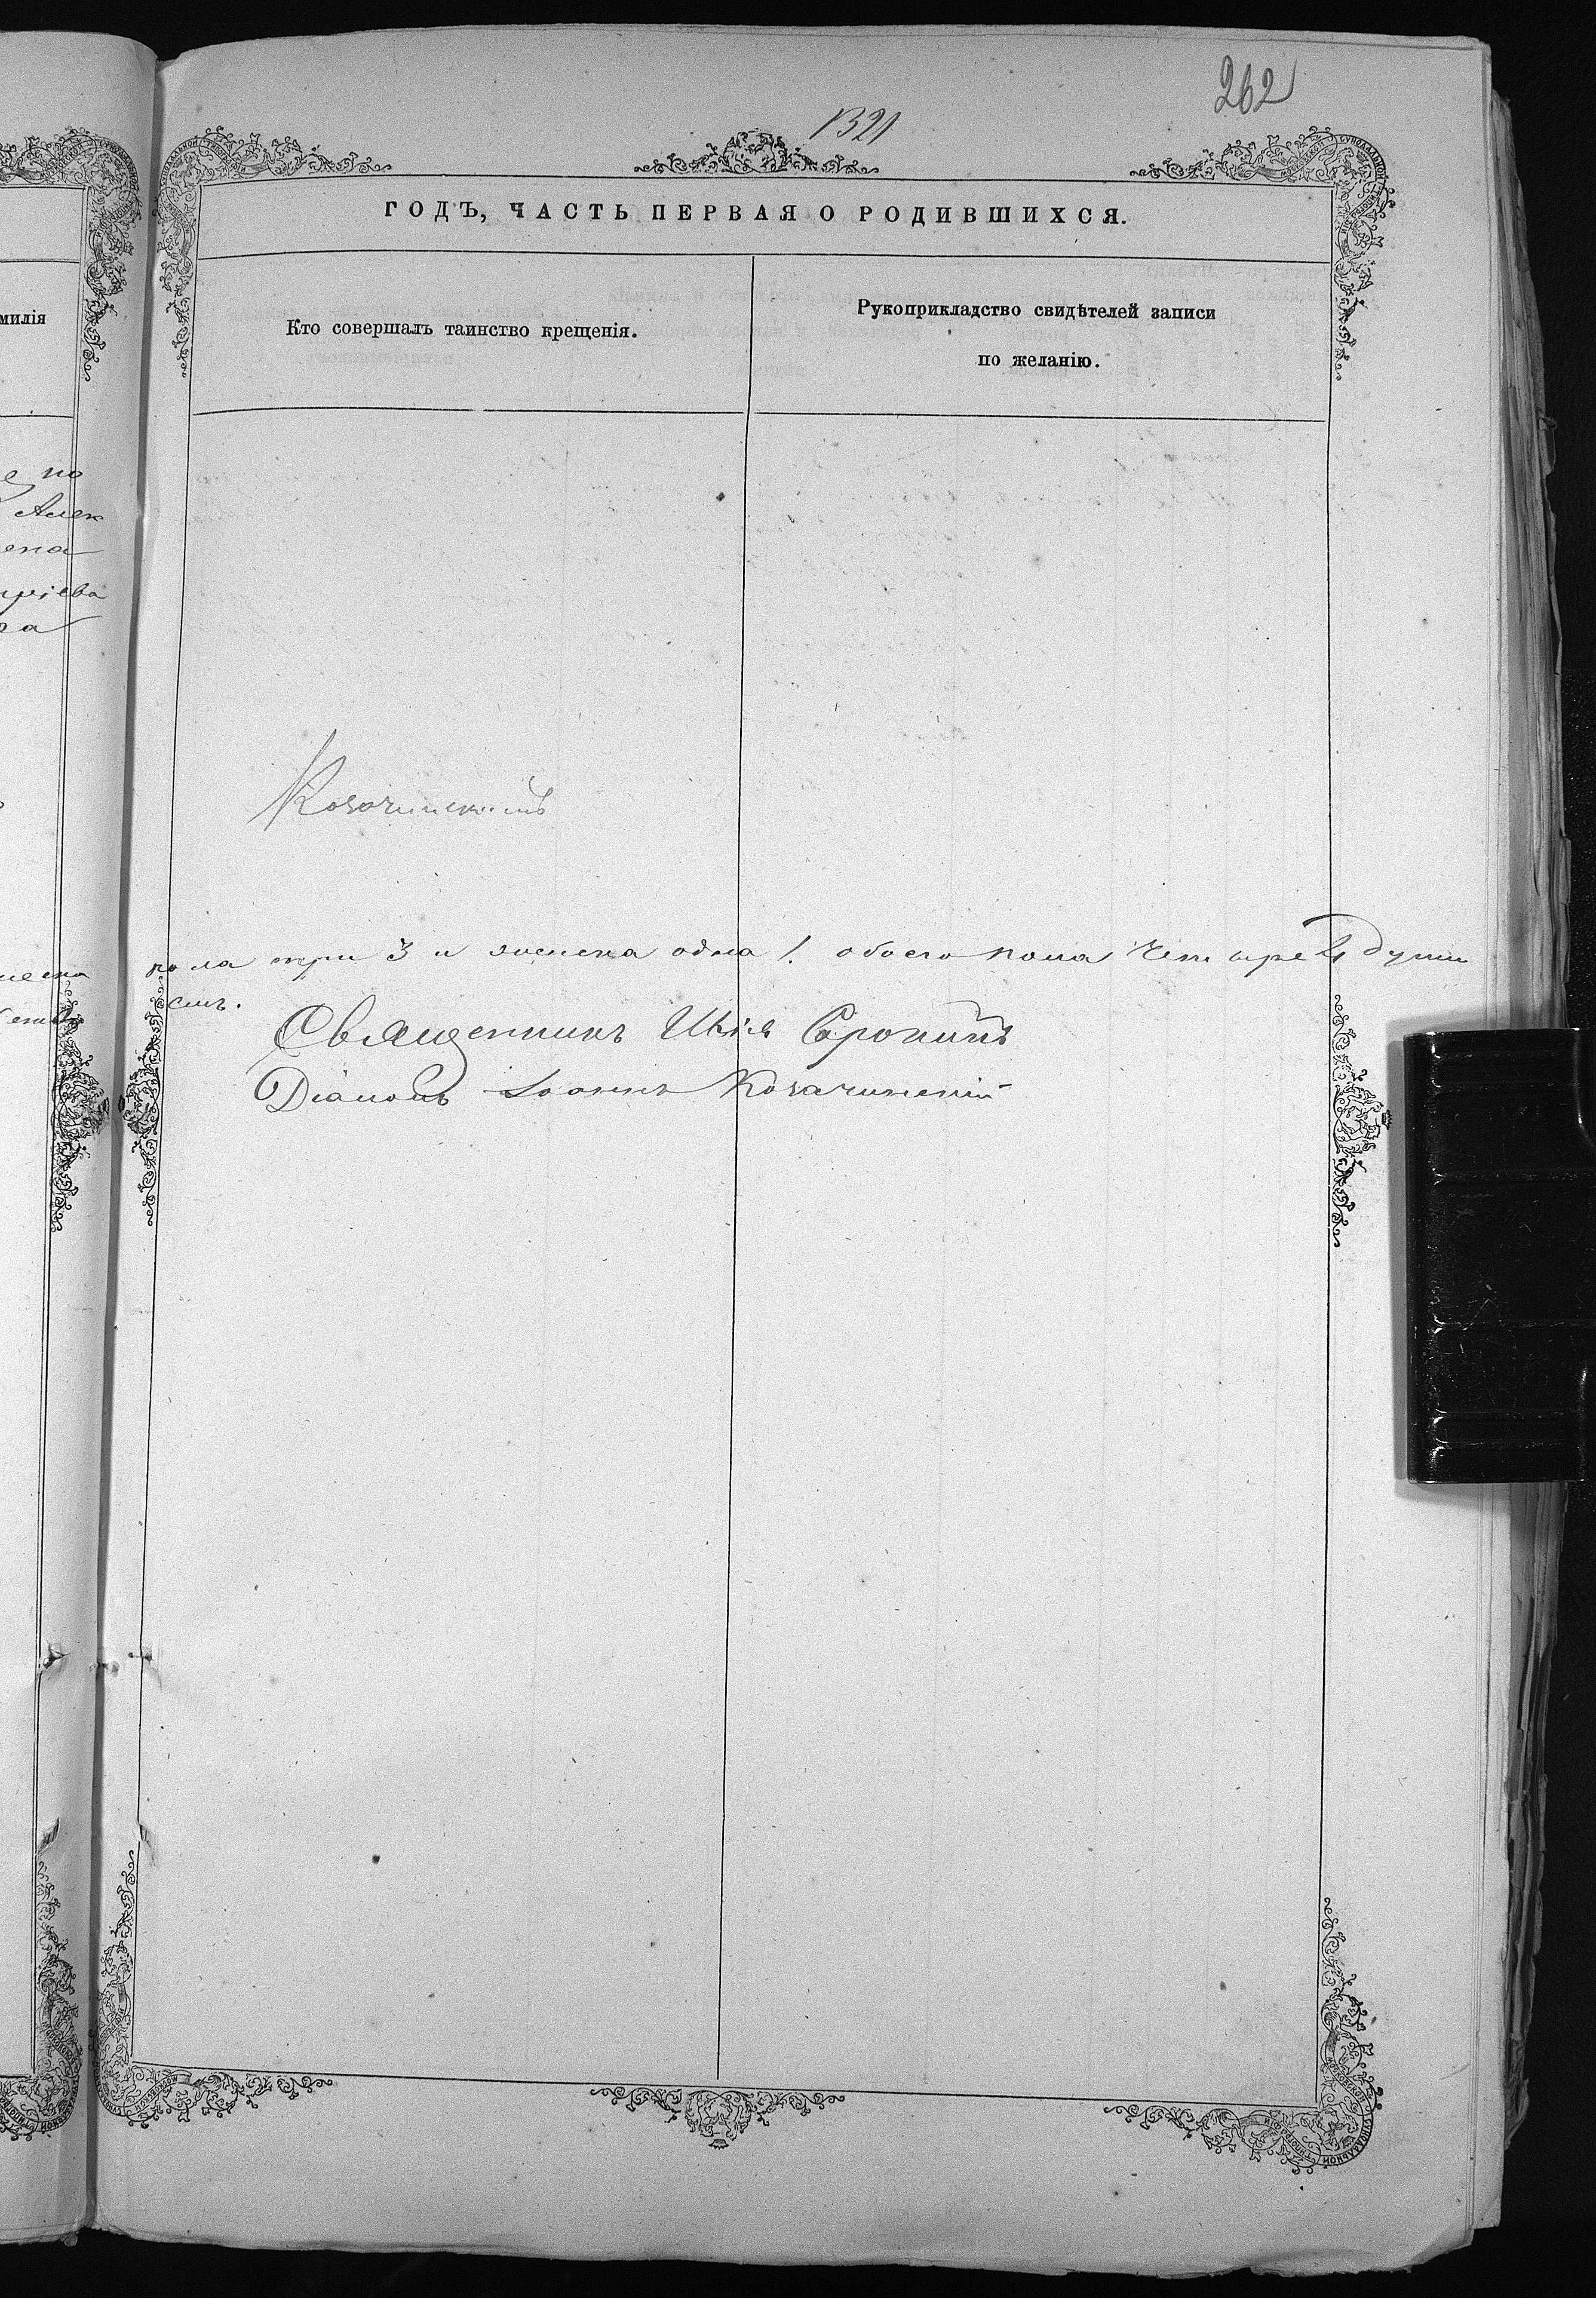 262
1321
ГОДЪ, ЧАСТЬ ПЕРВАЯ О РОДИВШИХСЯ.
милія
Кто совершалъ таинство крещенія.
Рукоприкладство свидѣтелей записи
по желанію.
по
Алек
ена
ра
Козачинскимъ
пола три 3 и женска одна 1. обоего пола четыре 4 души
Священникъ
Діаконъ Іоаннъ Козачинскій